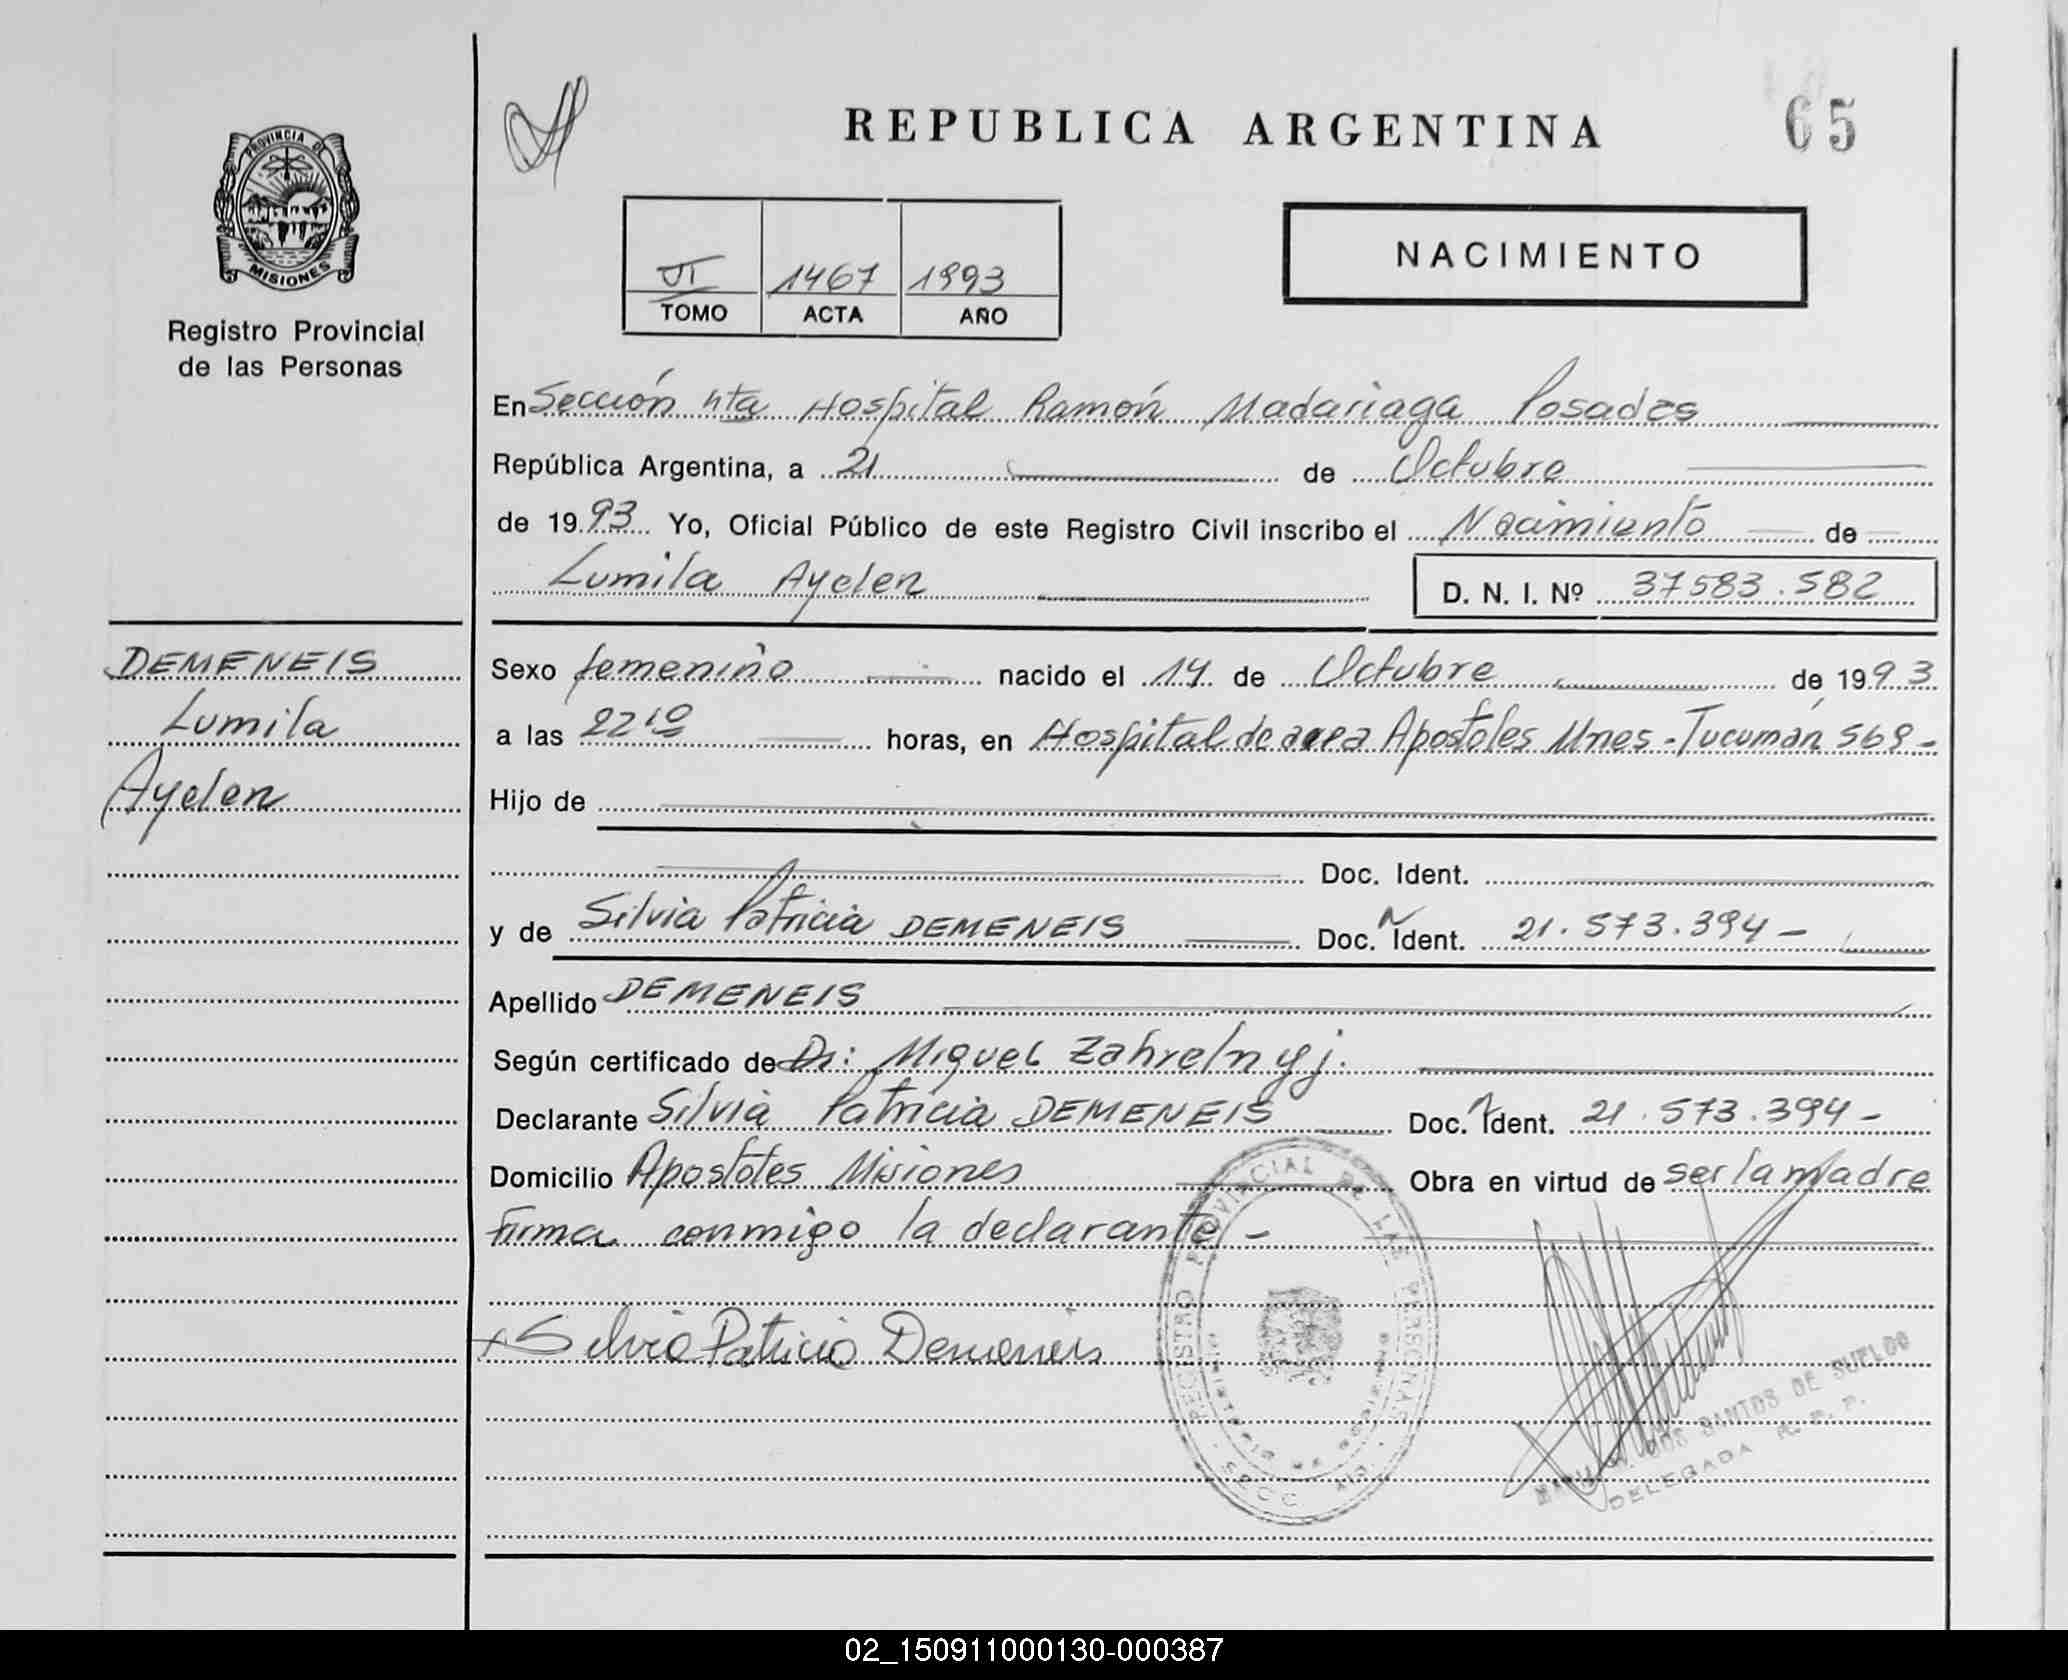 REPUBLICA ARGENTINA
65
PROVINCIA DE
MISIONES
Registro Provincial
de las Personas
VI 1467 1993
TOMO ACTA AÑO
NACIMIENTO
En Sección 4ta Hospital Ramón Madariaga Posadas
República Argentina, a 21 de Octubre
de 1993 Yo, Oficial Público de este Registro Civil inscribo el Nacimiento de
Lumila Ayelen D. N. I. Nº 37583.582
DEMENEIS
Lumila
Ayelen
Sexo femenino nacido el 14 de Octubre de 1993
a las 22 10 horas, en Hospital de area Apostoles Mnes-Tucumán 569-
Hijo de
Doc. Ident.
y de Silvia Patricia DEMENEIS Doc. Ident. 21.573.394-
Apellido DEMENEIS
Según certificado de Dr: Miguel
Declarante Silvia Patricia DEMENEIS Doc. Ident. 21.573.394-
Domicilio Apostoles Misiones Obra en virtud de ser la madre
firma conmigo la declarante-
Silvia Patricia Demeneis
REGISTRO PROVINCIAL DE LAS PERSONAS
DOS SANTOS DE SUELDO
DELEGADA R. P. P.
02_150911000130-000387